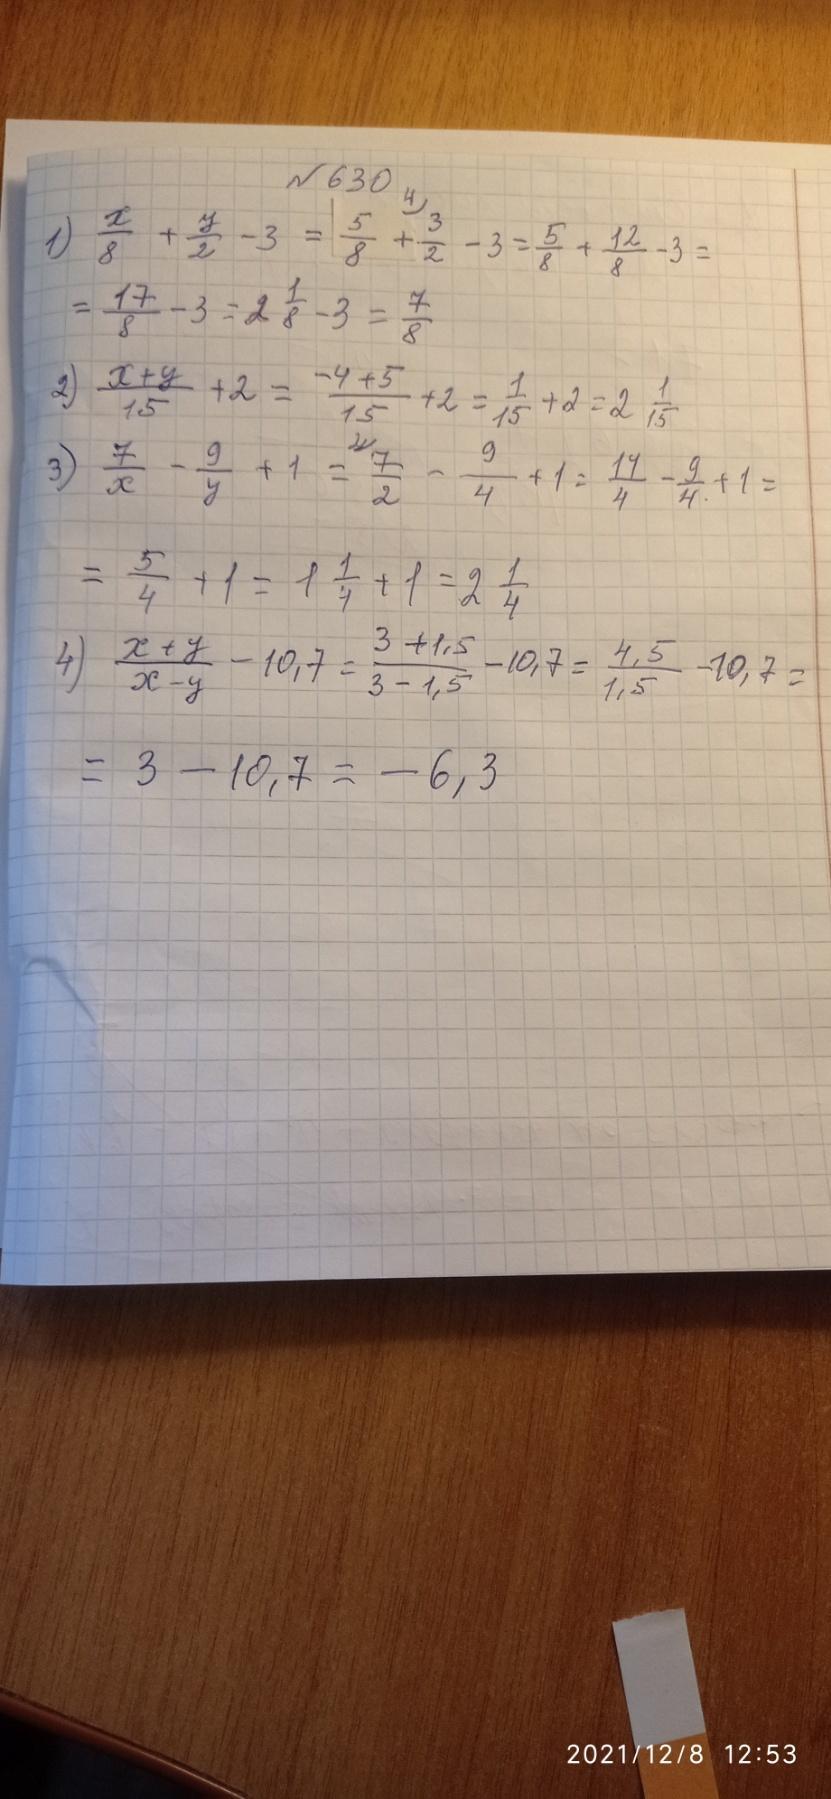 №630
1) x/8 + y/2 - 3 = 5/8 + 3/2 ⁴⁾ - 3 = 5/8 + 12/8 - 3 =
= 17/8 - 3 = 2 1/8 - 3 = 7/8
2) x+y/15 + 2 = -4+5/15 + 2 = 1/15 + 2 = 2 1/15
3) 7/x - 9/y + 1 = ²⁾ 7/2 - 9/4 + 1 = 14/4 - 9/4 + 1 =
= 5/4 + 1 = 1 1/4 + 1 = 2 1/4
4) x+y/x-y - 10,7 = 3+1,5/3-1,5 - 10,7 = 4,5/1,5 - 10,7 =
= 3 - 10,7 = - 6,3
2021/12/8 12:53